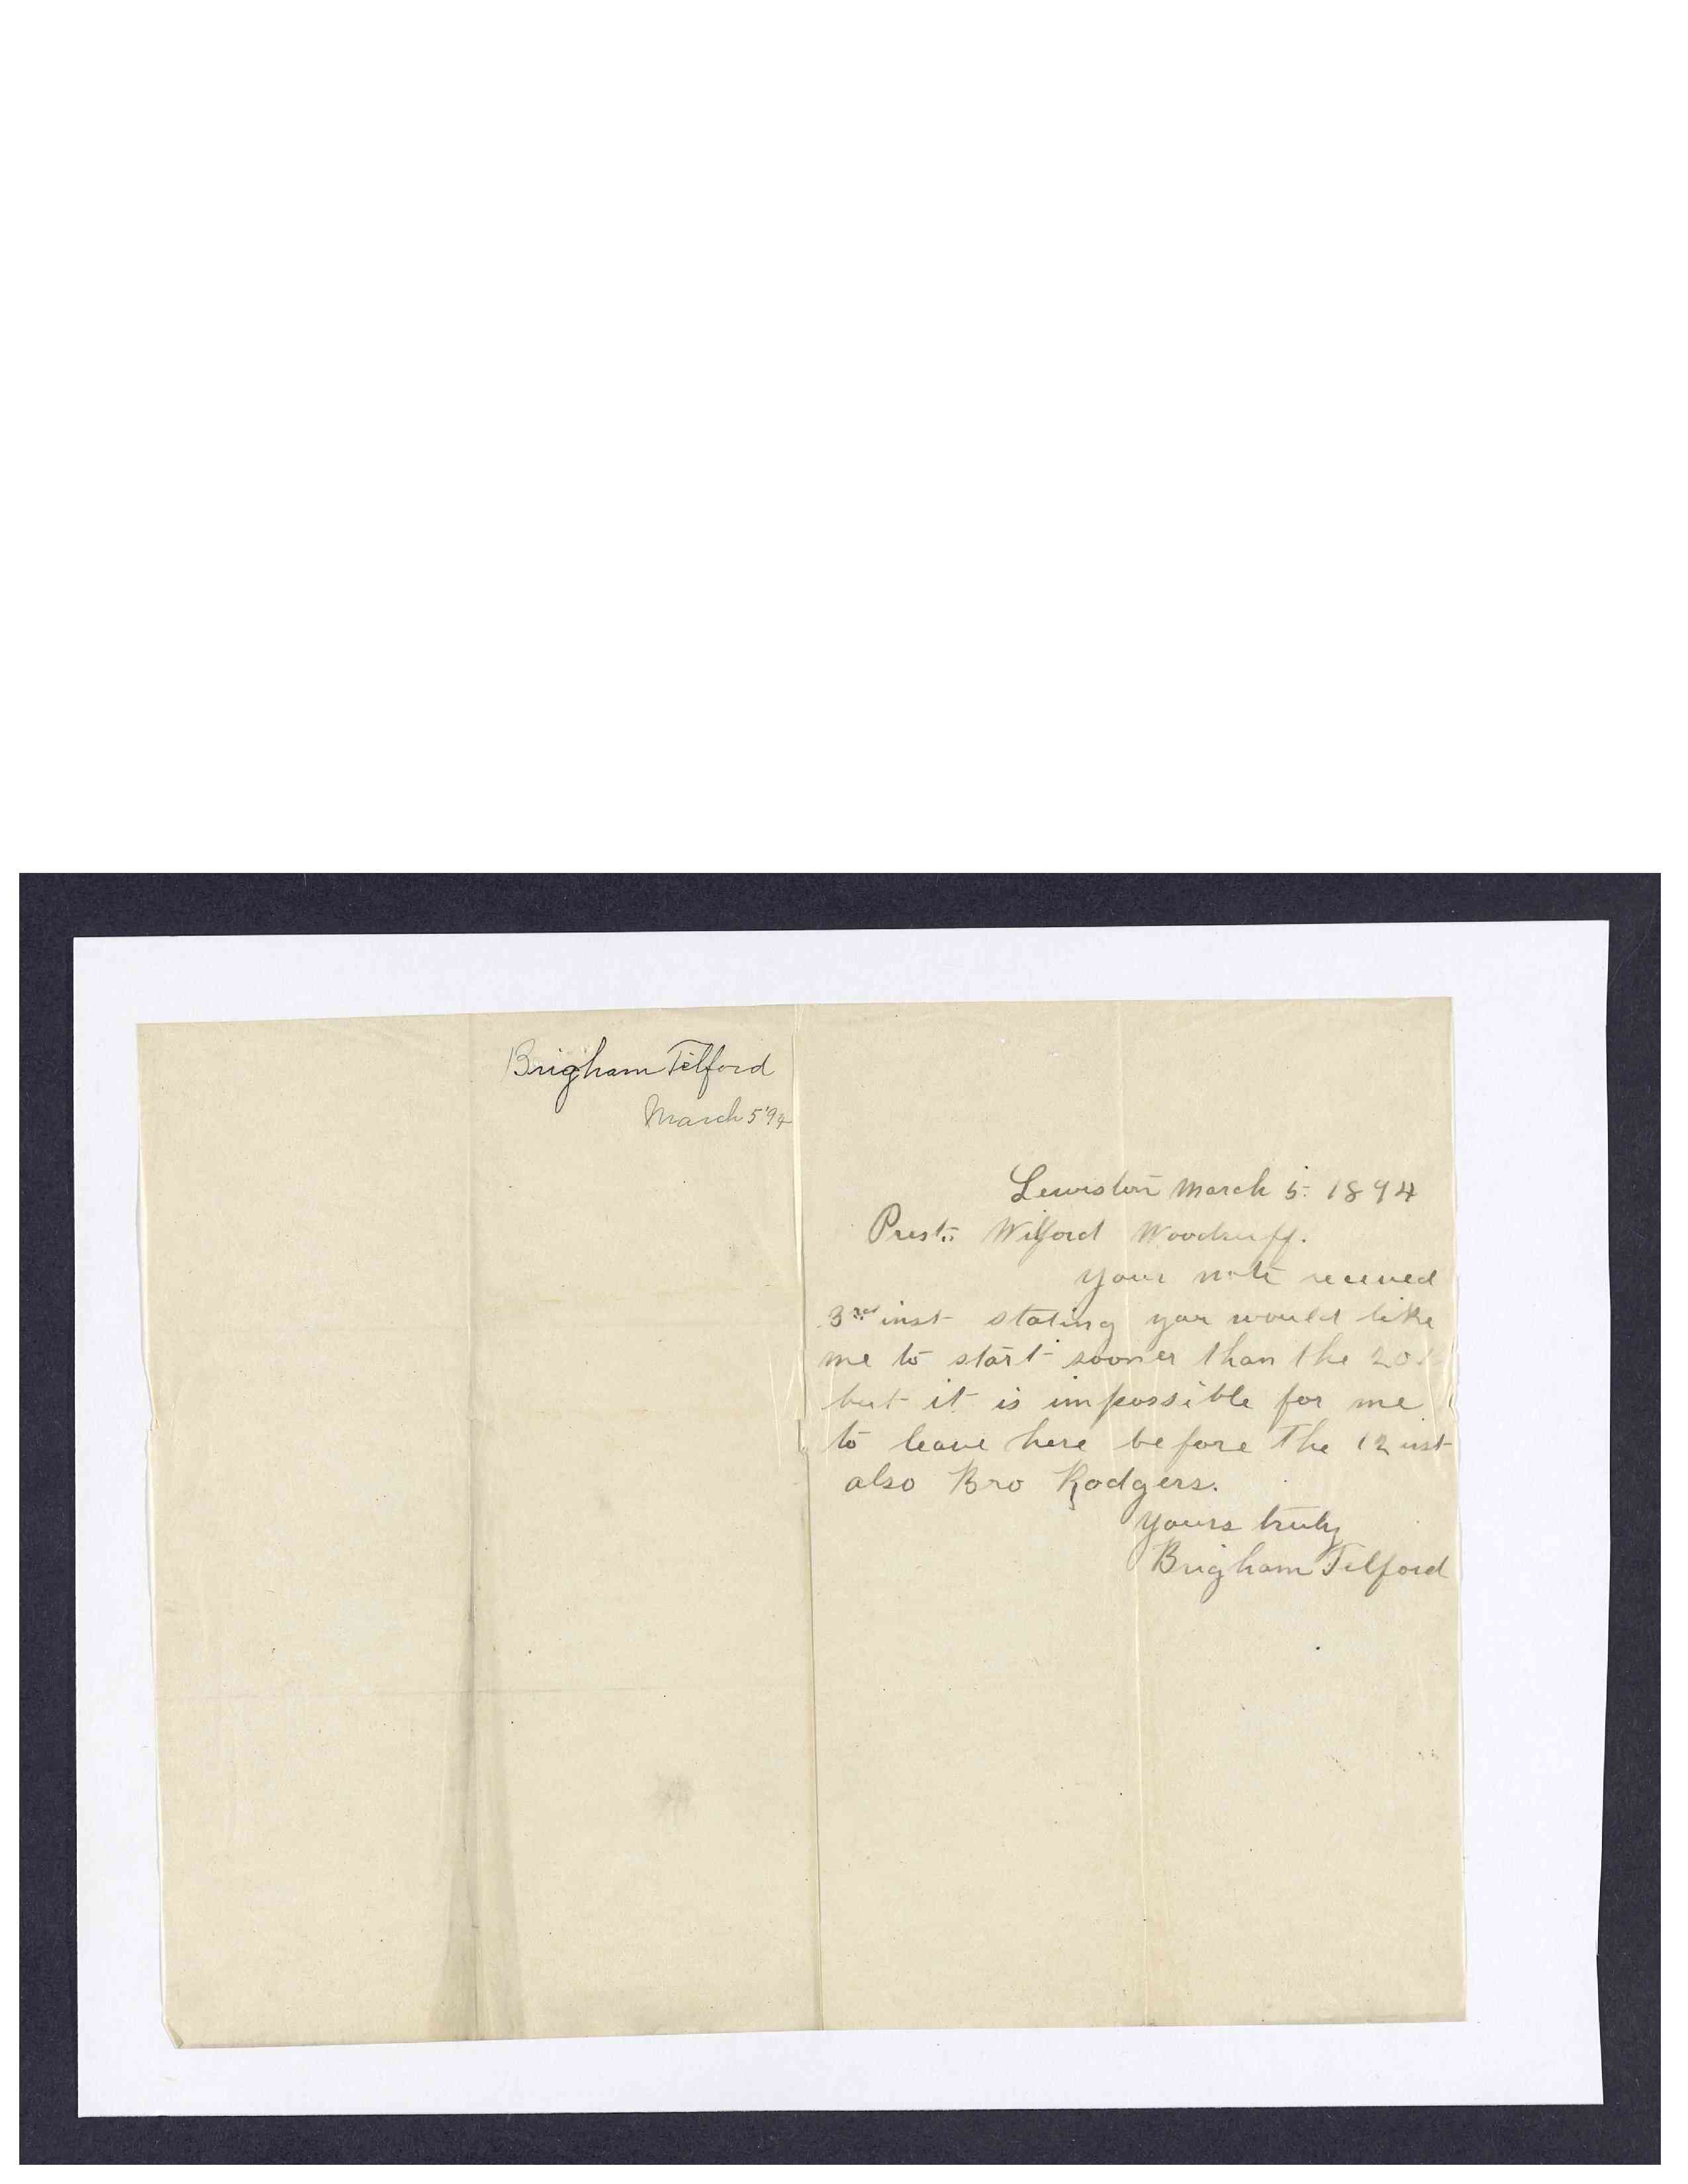 Brigham Telford
March 5 '94
Lewiston March 5. 1894
Prest. Wilford Woodruff.
Your note received
3rd inst stating you would like
me to start sooner than the 20
but it is impossible for me
to leave here before The 12 inst
also Bro Rodgers.
Yours truly
Brigham Telford